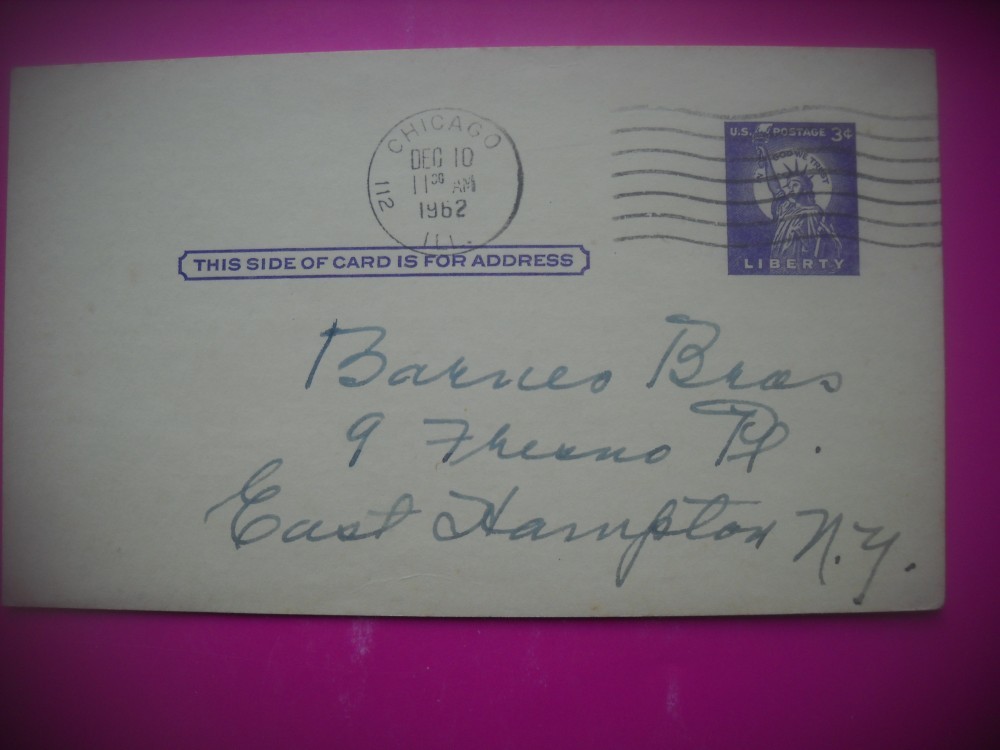 CHICAGO
DEC 10
11 30 AM
1962
112
ILL.
U.S. POSTAGE 3¢
IN GOD WE TRUST
LIBERTY
THIS SIDE OF CARD IS FOR ADDRESS
Barnes Bros
9 Fresno Pl.
East Hampton N.Y.